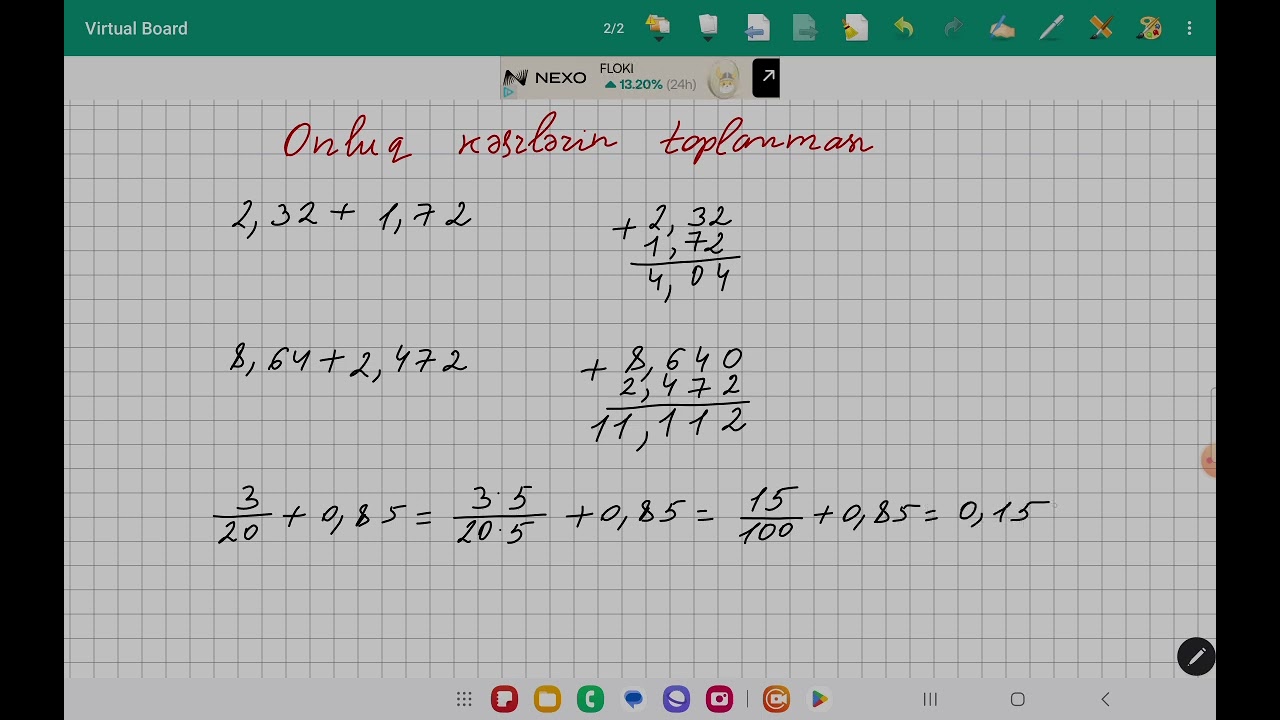 Virtual Board 2/2
NEXO FLOKI 13.20% (24h)
Onluq kəsrlərin toplanması
2,32 + 1,72
+ 2,32
1,72
4,04
8,64 + 2,472
+ 8,640
2,472
11,112
3/20 + 0,85 = 3·5/20·5 + 0,85 = 15/100 + 0,85 = 0,15